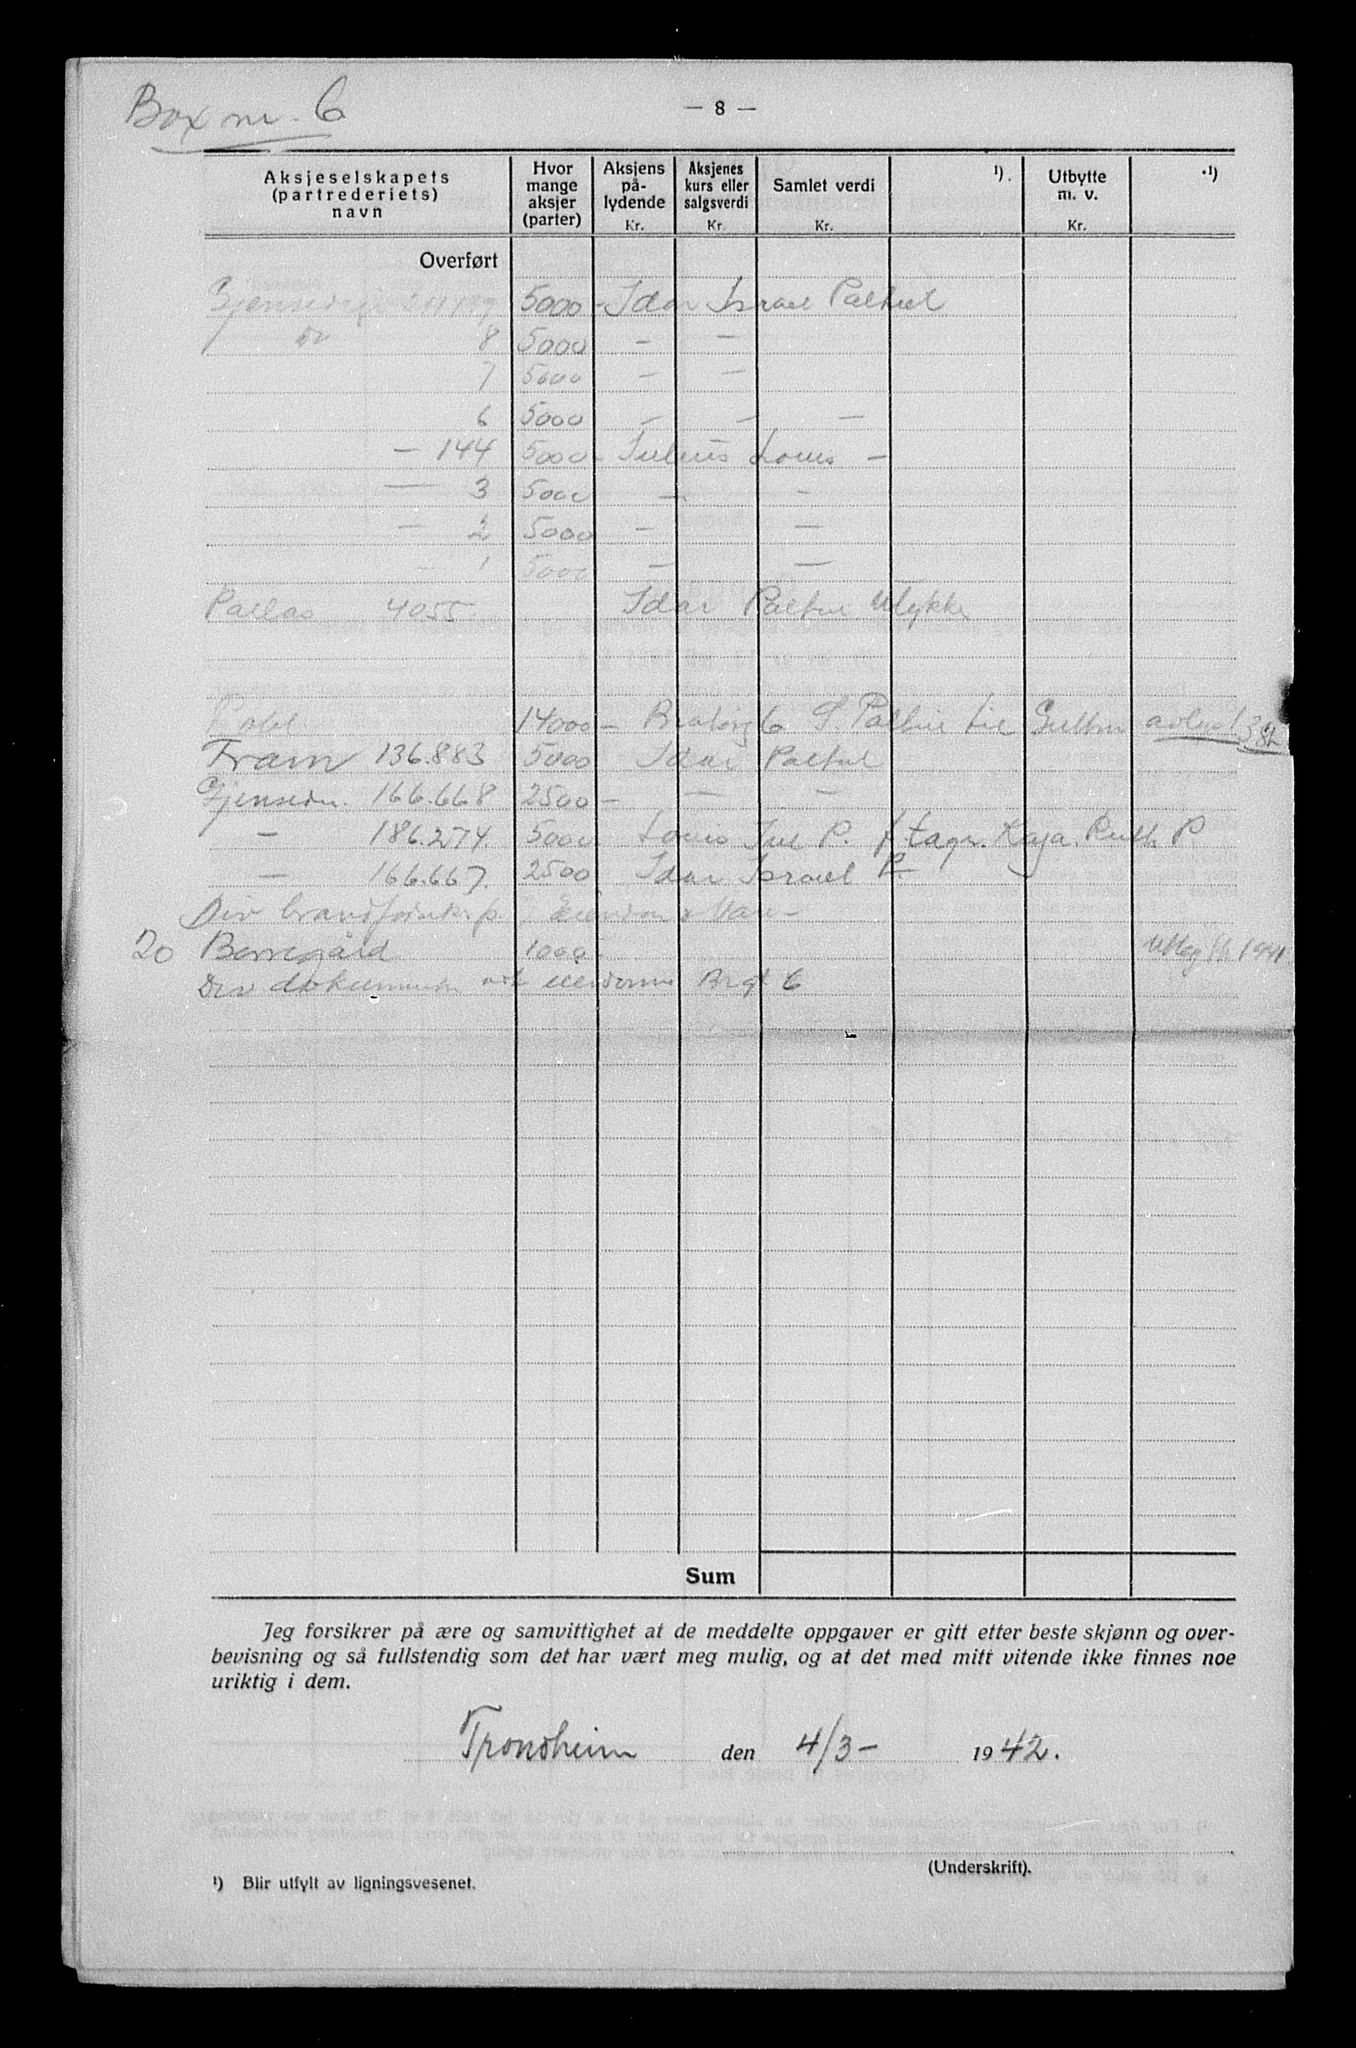 Box nr. 6
— 8 —
Aksjeselskapets (partrederiets) navn
Hvor mange aksjer (parter)
Aksjens pålydende Kr.
Aksjenes kurs eller salgsverdi Kr.
Samlet verdi Kr.
¹).
Utbytte m. v. Kr.
¹)
Overført
5000 – Idar Israel Paltiel
do 8 5000 – –
7 5000 – –
6 5000 – – –
– 144 5000 Julius Louis –
— 3 5000 – –
— 2 5000 – –
– 1 5000 – –
Pallas 4055 Idar Paltiel Ulykke
14000 – 6 Paltiel til
Fram 136.883 5000 Idar Paltiel
Gjensedn. 166.668 2500 – – –
– 186.274. 5000 Louis Jul P. f. Dagr. Kaja. Ruth P.
– 166.667. 2500 Idar Israel P.
Div Eiendom & Vare –
20 Borregård 1000 1941
Div dokumenter Brgt 6
Sum
Jeg forsikrer på ære og samvittighet at de meddelte oppgaver er gitt etter beste skjønn og over-
bevisning og så fullstendig som det har vært meg mulig, og at det med mitt vitende ikke finnes noe
uriktig i dem.
Trondheim den 4/3 – 1942.
(Underskrift).
¹) Blir utfylt av ligningsvesenet.